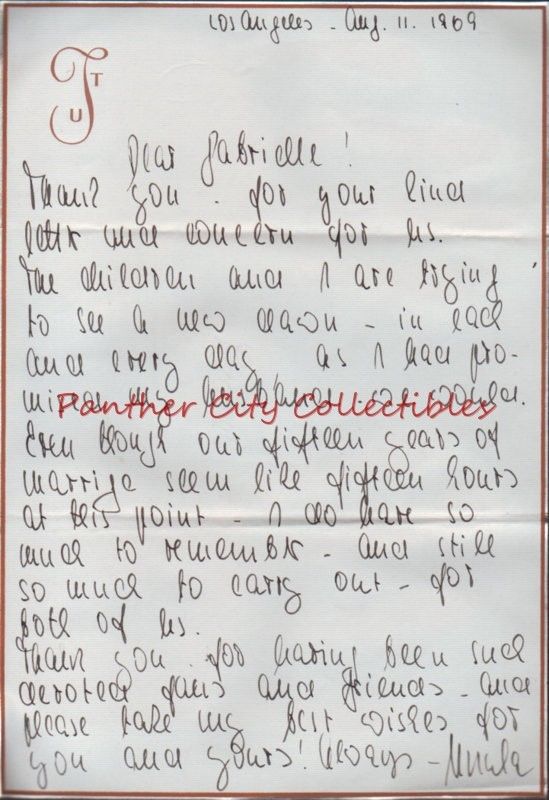 Los Angeles - Aug. 11. 1969
T U T
Dear Gabrielle!
Thank you - for your kind
letter and concern for us.
The children and I are trying
to see a new dawn - in each
and every day as I had pro-
mised my husband we would.
Panther City Collectibles
Even though our fifteen years of
marrige seem like fifteen hours
at this point - I do have so
much to remember - and still
so much to carry out - for
both of us.
Thank you for having been such
devoted fans and friends - and
please take my best wishes for
you and yours! Always - Ursula